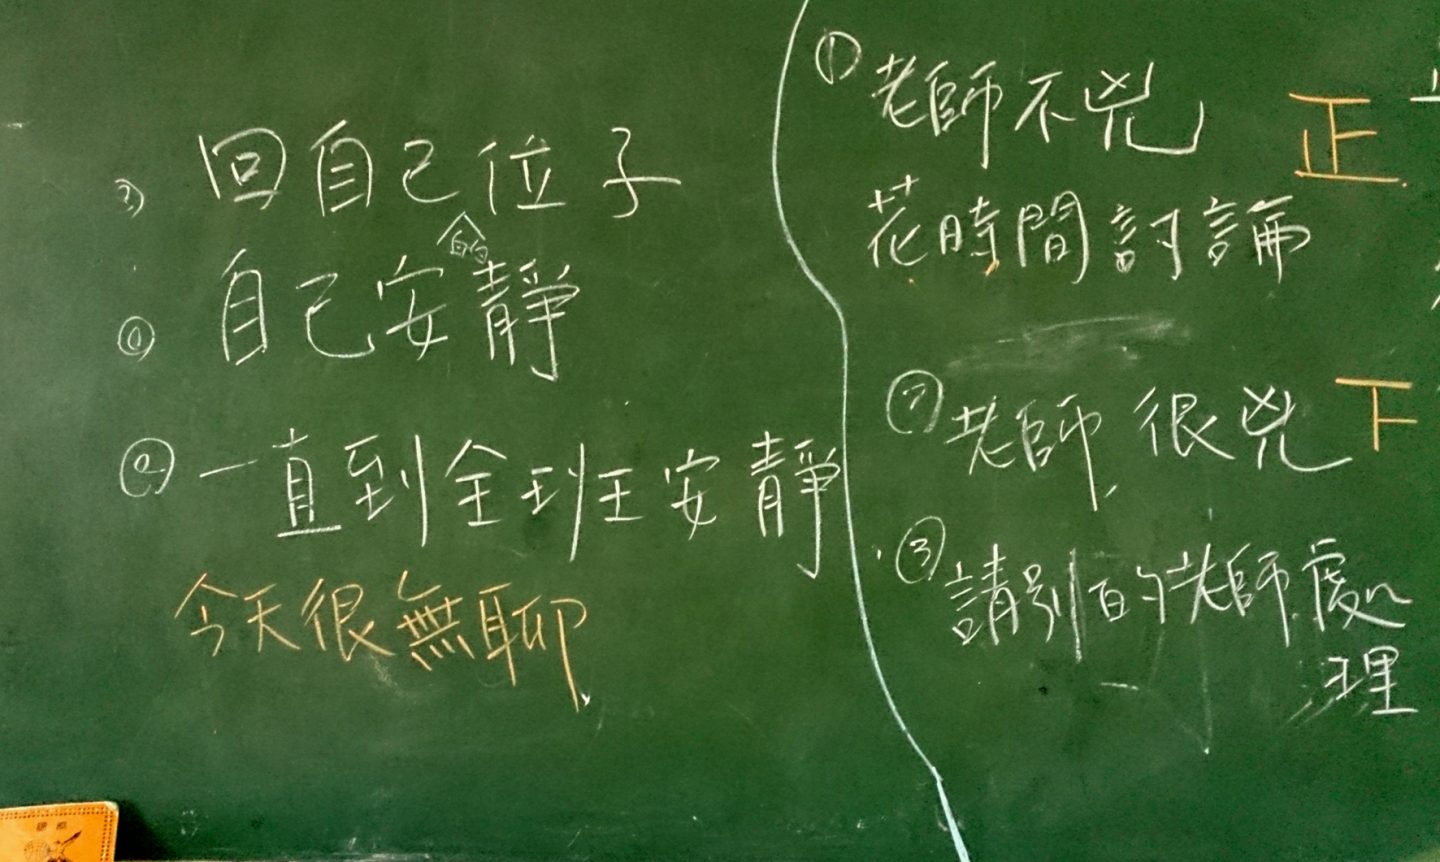 ③ 回自己位子
① 自己安靜
② 一直到全班安靜
今天很無聊
① 老師不兇 正
花時間討論
② 老師很兇 下
③ 請別的老師處
理